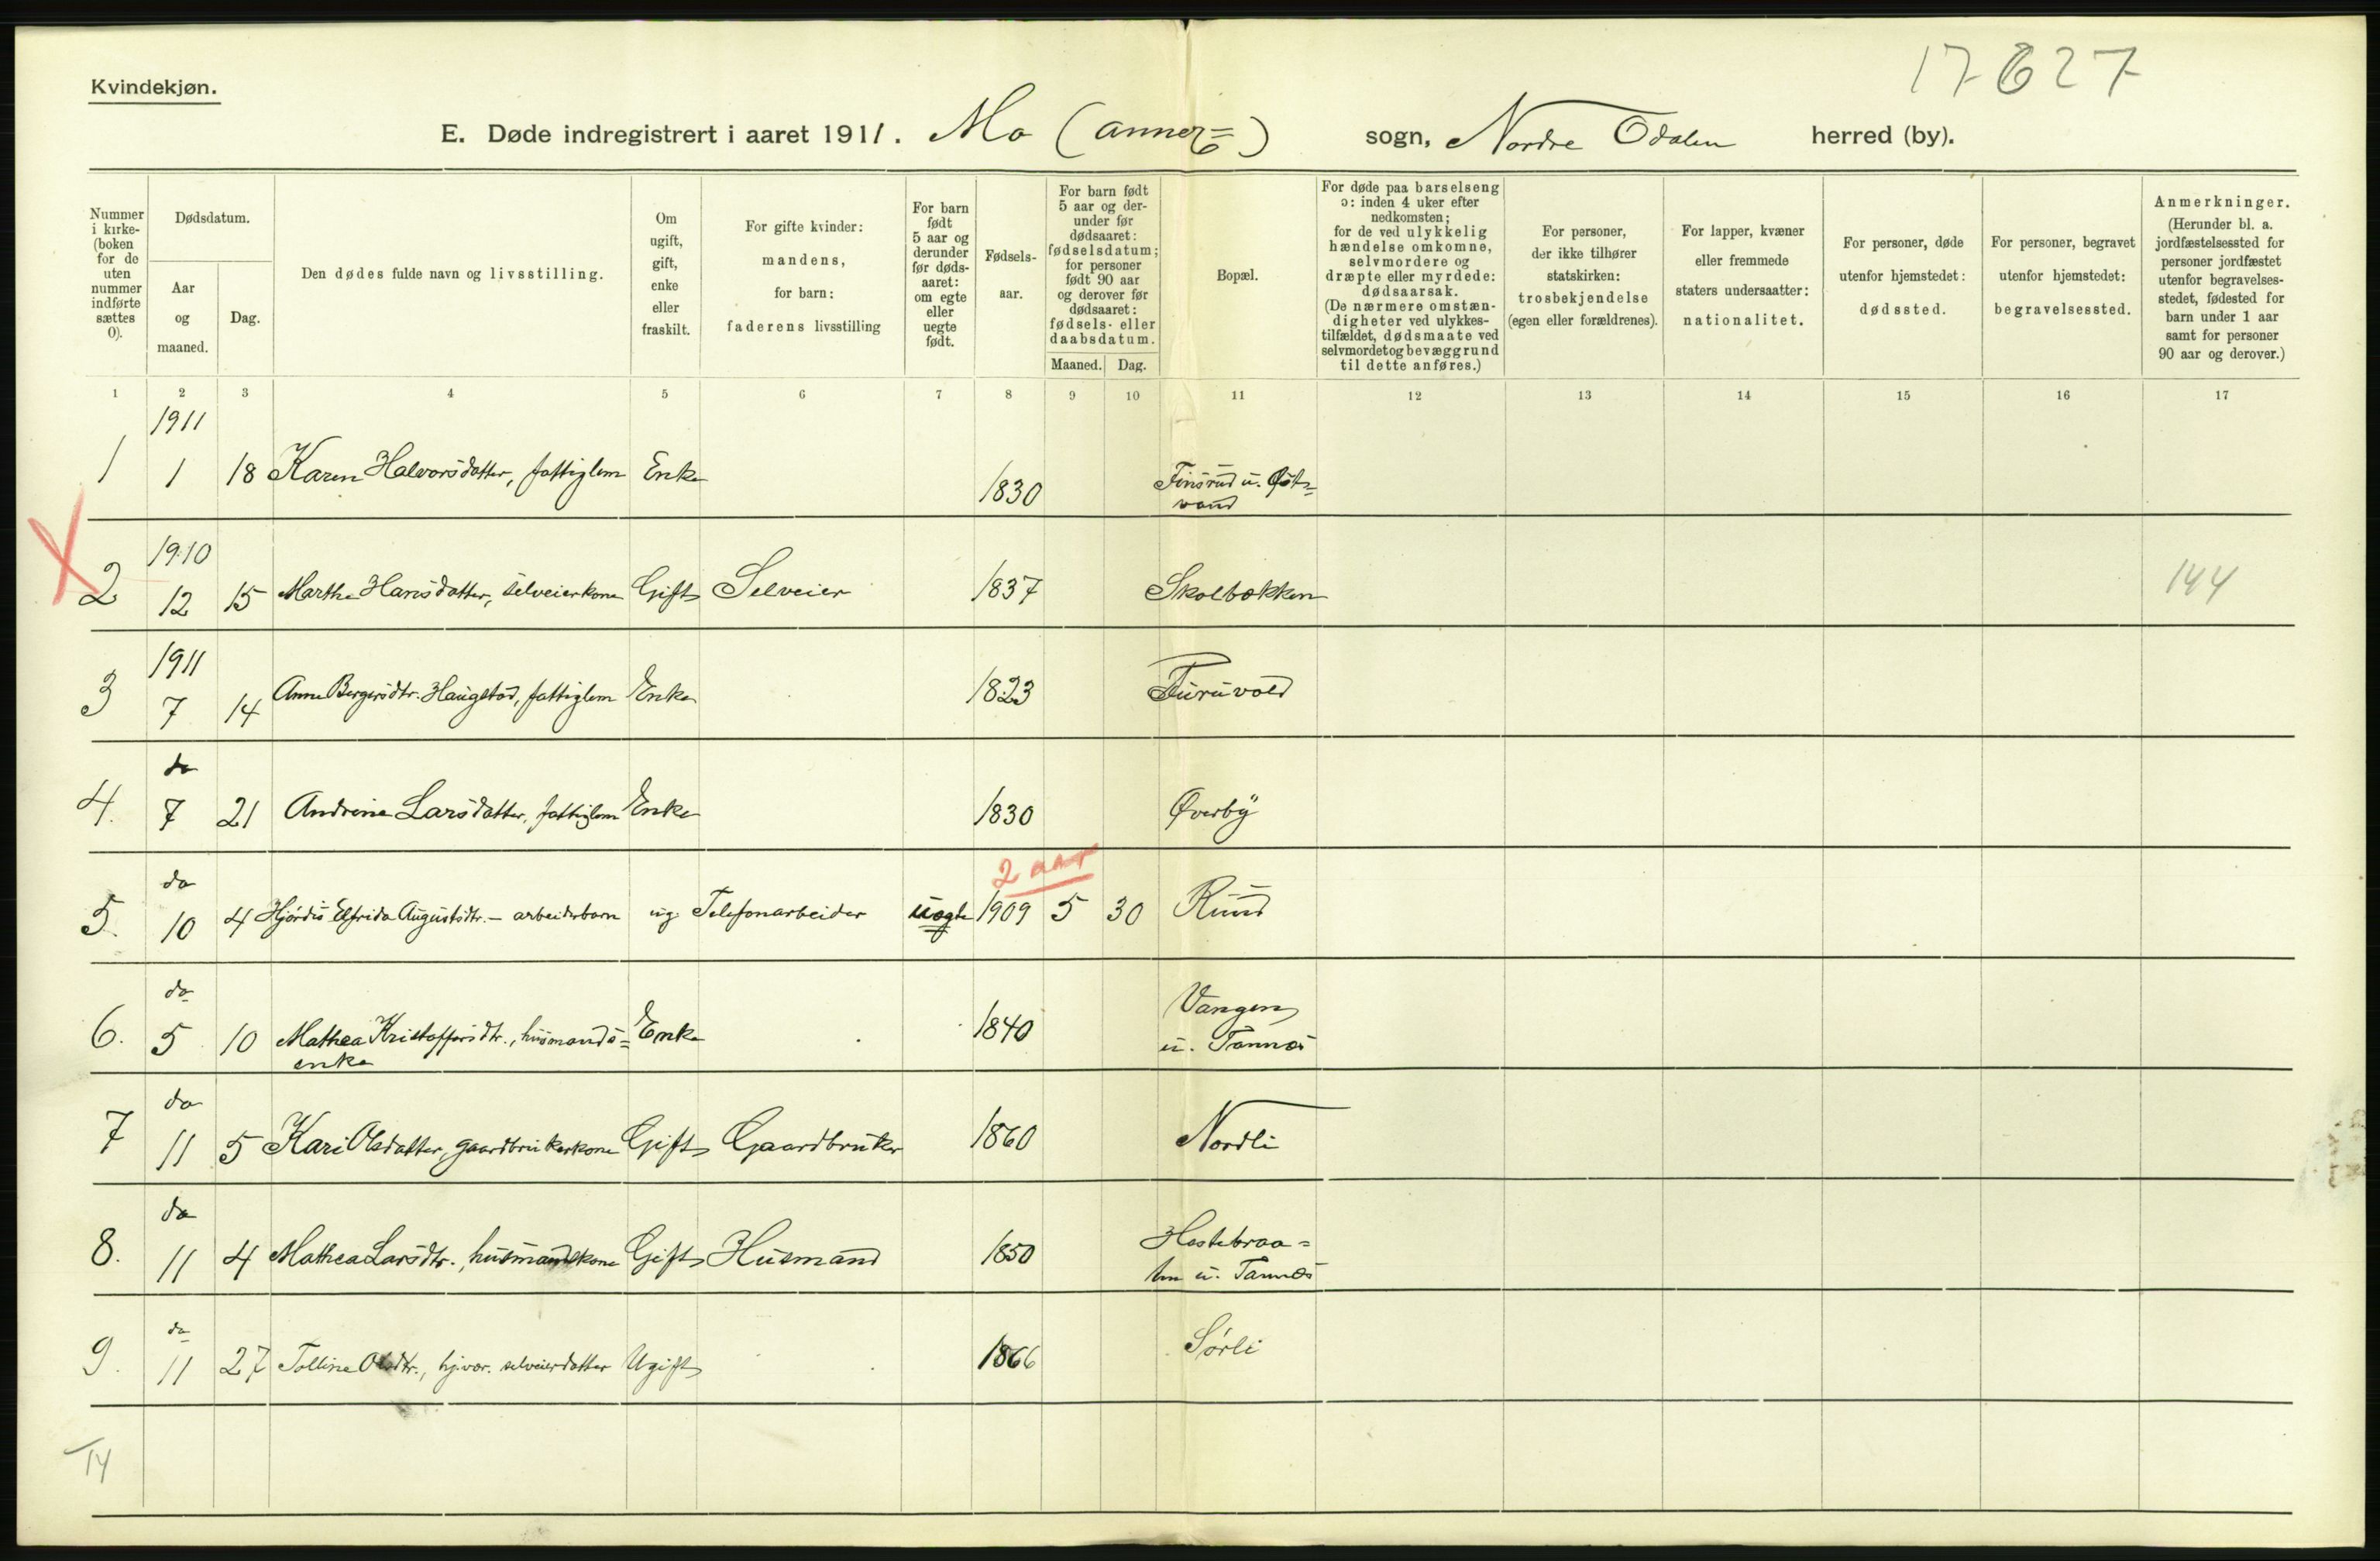 17627
Kvindekjøn.
E. Døde indregistrert i aaret 1911. Mo (annex) sogn, Nordre Odalen herred (by).
Nummer i kirke- (boken for de uten nummer indførte sættes 0).
Dødsdatum.
Aar og maaned.
Dag.
Den dødes fulde navn og livsstilling.
Om ugift, gift, enke eller fraskilt.
For gifte kvinder: mandens, for barn: faderens livsstilling
For barn født 5 aar og derunder før døds- aaret: om egte eller uegte født.
Fødsels- aar.
For barn født 5 aar og der- under før dødsaaret: fødselsdatum; for personer født 90 aar og derover før dødsaaret: fødsels- eller daabsdatum.
Maaned. Dag.
Bopæl.
For døde paa barselseng ɔ: inden 4 uker efter nedkomsten; for de ved ulykkelig hændelse omkomne, selvmordere og dræpte eller myrdede: dødsaarsak. (De nærmere omstæn- digheter ved ulykkes- tilfældet, dødsmaate ved selvmordet og bevæggrund til dette anføres.)
For personer, der ikke tilhører statskirken: trosbekjendelse (egen eller forældrenes).
For lapper, kvæner eller fremmede staters undersaatter: nationalitet.
For personer, døde utenfor hjemstedet: dødssted.
For personer, begravet utenfor hjemstedet: begravelsessted.
Anmerkninger. (Herunder bl. a. jordfæstelsessted for personer jordfæstet utenfor begravelses- stedet, fødested for barn under 1 aar samt for personer 90 aar og derover.)
1 2 3 4 5 6 7 8 9 10 11 12 13 14 15 16 17
1911
1 1 18 Karen Halvorsdatter, fattiglem Enke 1830 Finsrud u. Øst=
vand
1910
2 12 15 Marthe Hansdatter, selveierkone Gift Selveier 1837 Skolbækken 144
1911
3 7 14 Anne Bergersdtr. Haugstad, fattiglem Enke 1823 Furuvold
do
4. 7 21 Andrine Larsdatter, fattiglem Enke 1830 Øverby
2 aar
do
5. 10 4 Hjördis Elfrida Augustsdtr. - arbeiderbarn ug. Telefonarbeider uægte 1909 5 30 Ruud
do
6. 5 10 Mathea Kristoffersdtr., husmands= Enke 1840 Vangen
enke u. Tannæs
do
7 11 5 Kari Olsdatter, gaardbrukerkone Gift Gaardbruker 1860 Nordli
do
8. 11 4 Mathea Larsdtr., husmandskone Gift Husmand 1850 Hestebraa=
ten u. Tannæs
do
9. 11 27 Tolline Olsdtr., hjvær. selveierdatter Ugift 1866 Sørli
14